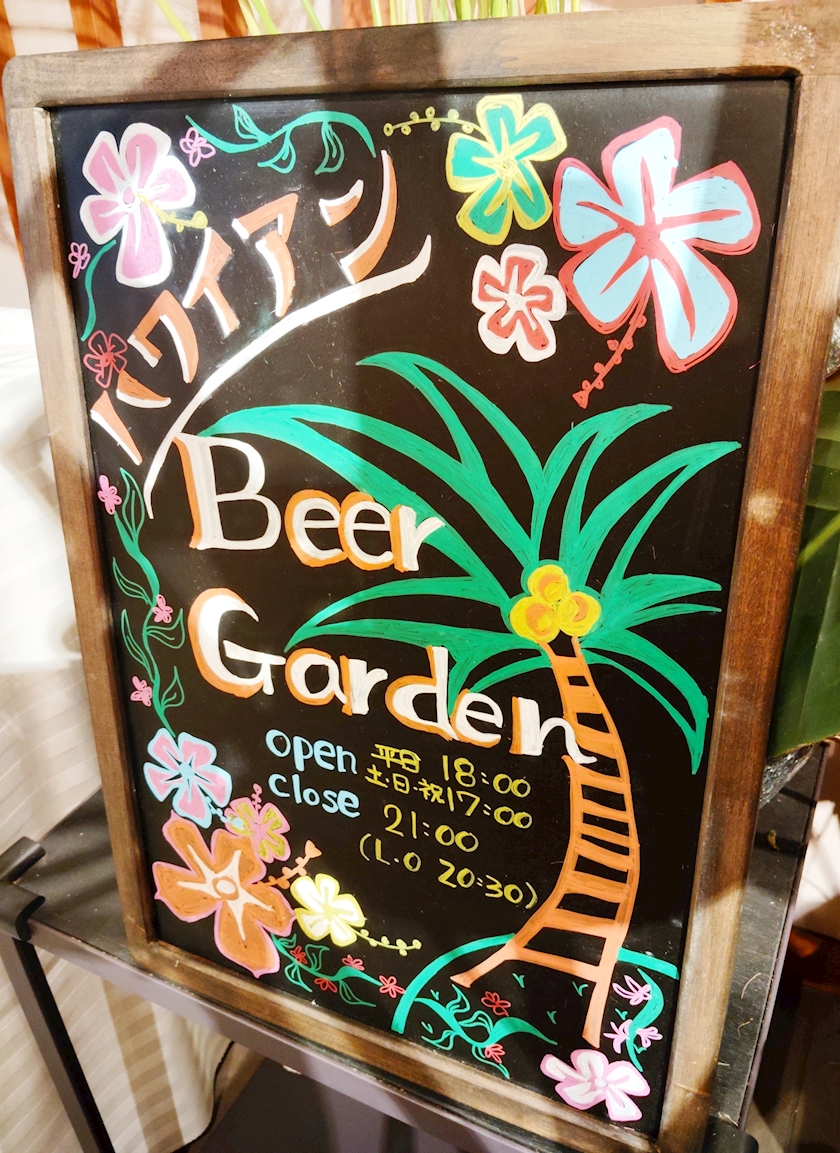 ハワイアン
Beer
Garden
open 平日 18:00
土・日・祝 17:00
close 21:00
(L.O 20:30)